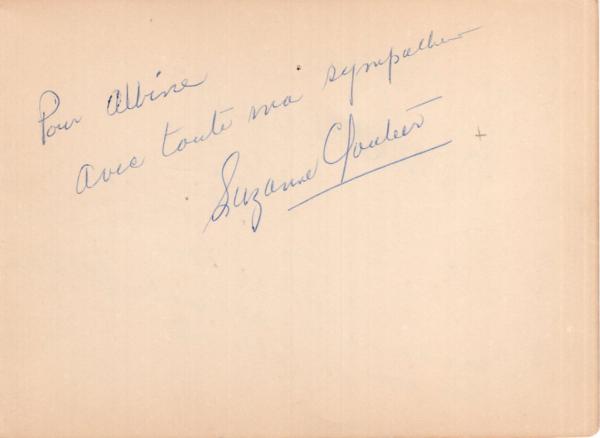 Pour Albine
avec toute ma sympathie
Suzanne Cloutier